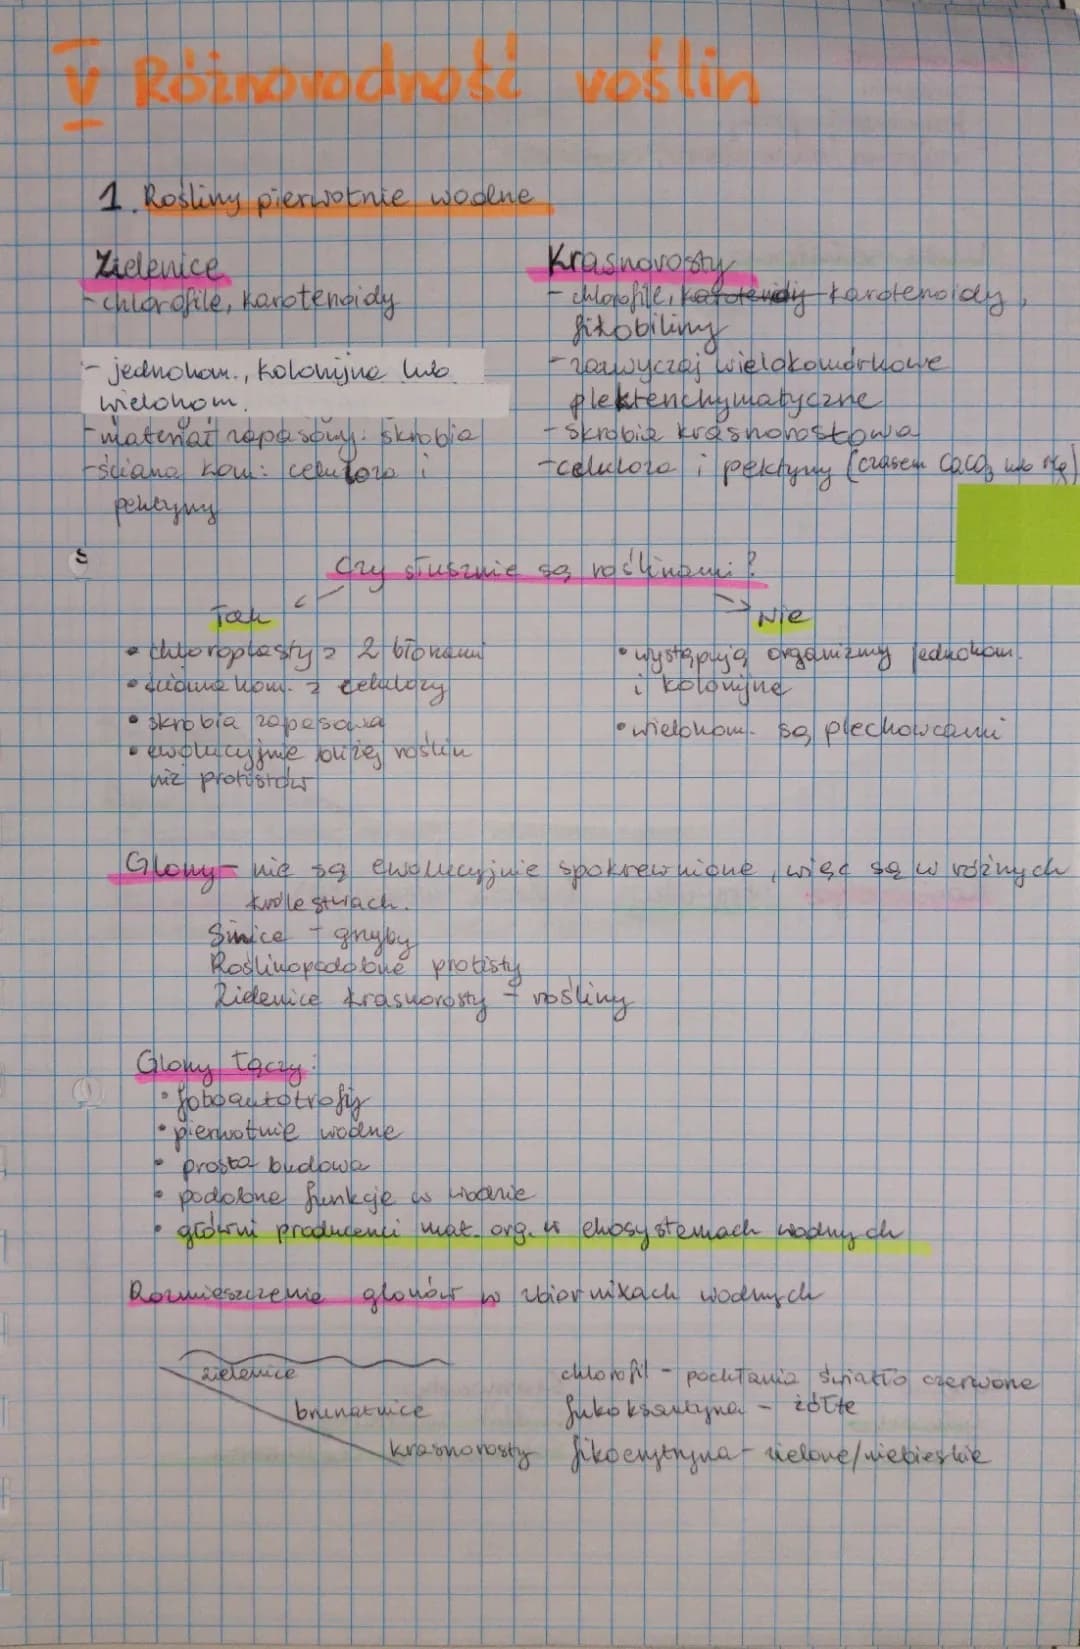 V Różnorodność roślin
1. Rośliny pierwotnie wodne
Zielenice
- chlorofile, karotenoidy
- jednokom., kolonijne lub
wielokom.
- materiał zapasowy: skrobia
- ściana kom: celuloza i
pektyny
Krasnorosty
- chlorofile, karotenoidy karotenoidy,
fikobiliny
- zazwyczaj wielokomórkowe
plektenchymatyczne
- skrobia krasnorostowa
- celuloza i pektyny (czasem CaCO3 lub Mg)
Czy słusznie są roślinami?
Tak
• chloroplasty z 2 błonami
• ściana kom. z celulozy
• skrobia zapasowa
• ewolucyjnie bliżej roślin
niż protistów
Nie
• występują organizmy jednokom.
i kolonijne
• wielokom. są plechowcami
Glony - nie są ewolucyjnie spokrewnione, więc są w różnych
królestwach.
Sinice - gnyby
Roślinopodobne protisty
Zielenice krasnorosty - rośliny
Glony łączy:
• fotoautotrofizm
• pierwotnie wodne
• prosta budowa
• podobne funkcje w wodzie
• główni producenci mat. org. w ekosystemach wodnych
Rozmieszczenie glonów w zbiornikach wodnych
zielenice
brunatnice
krasnorosty
chlorofil - pochłania światło czerwone
fukoksantyna - żółte
fikoerytryna - zielone/niebieskie